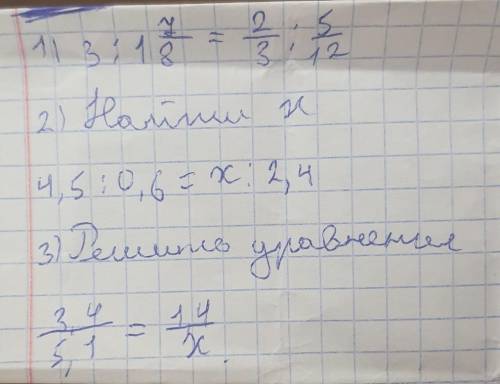 1) 3 : 1 7/8 = 2/3 : 5/12
2) Найти х
4,5 : 0,6 = х : 2,4
3) Решить уравнения
3,4/5,1 = 14/х